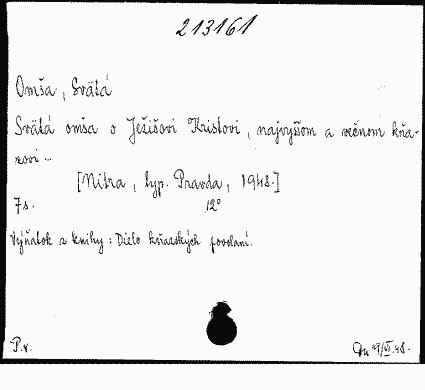 213161
Omša, Svätá
Svätá omša o Ježišovi Kristovi, najvyššom a večnom kňa-
zovi...
[Nitra, typ. Pravda, 1948.]
7 s. 12°
Výňatok z knihy: Dielo kňazských povolaní.
P.v. 19/VI.48.